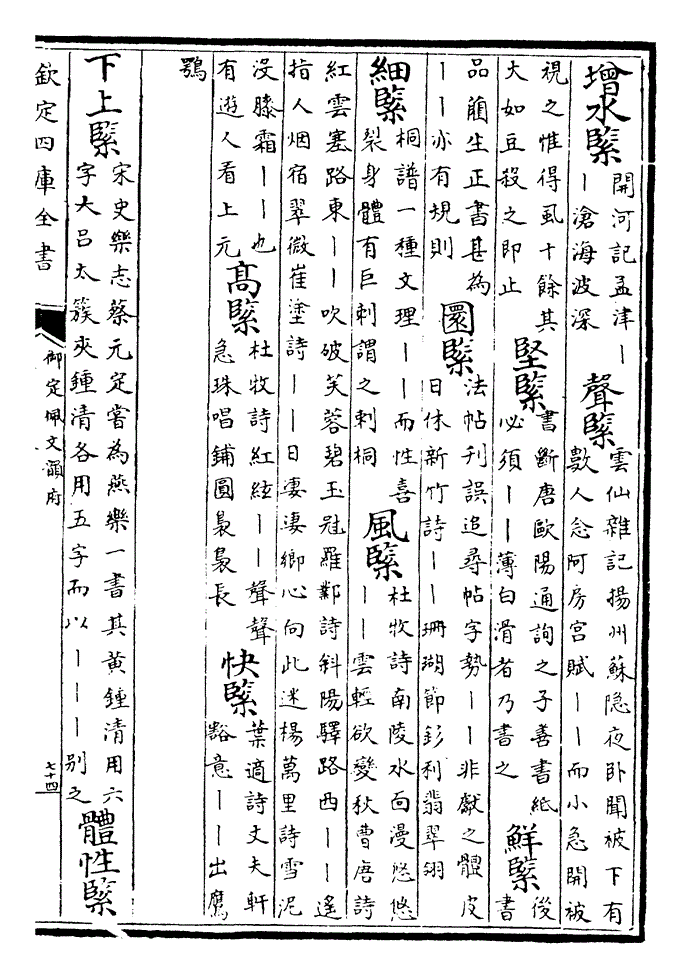 增水緊
開河記孟津丨
丨滄海波深
聲緊
雲仙雜記揚州蘇隠夜卧聞被下有
數人念阿房宮賦丨丨而小急開被
視之惟得風十餘其
大如豆殺之即止
堅緊
書斷唐歐陽通詢之子善書紙
必須丨丨薄白滑者乃書之
鮮緊
後
書
品蕳生正書甚為
丨丨亦有規則
圜緊
法帖刊誤追尋帖字勢丨丨非獻之體皮
日休新竹詩丨丨珊瑚節釤利翡翠翎
細緊
桐譜一種文理丨丨而性喜
裂身體有巨刺謂之刺桐
風緊
杜牧詩南陵水面漫悠悠
丨丨雲輕欲變秋曹唐詩
紅雲塞路東丨丨吹破芙蓉碧玉冠羅鄴詩斜陽驛路西丨丨遙
指人烟宿翠微崔塗詩丨丨日凄凄鄉心向此迷楊萬里詩雪泥
沒膝霜丨丨也
有遊人看上元
高緊
杜牧詩紅絃丨丨聲聲
急珠唱鋪圓裊裊長
快緊
葉適詩丈夫軒
豁意丨丨出鷹
鶚
下上緊
宋史樂志蔡元定嘗為燕樂一書其黃鍾清用六
字大吕太簇夾鍾清各用五字而以丨丨丨別之
體性緊
欽定四庫全書
御定佩文韻府
七十四